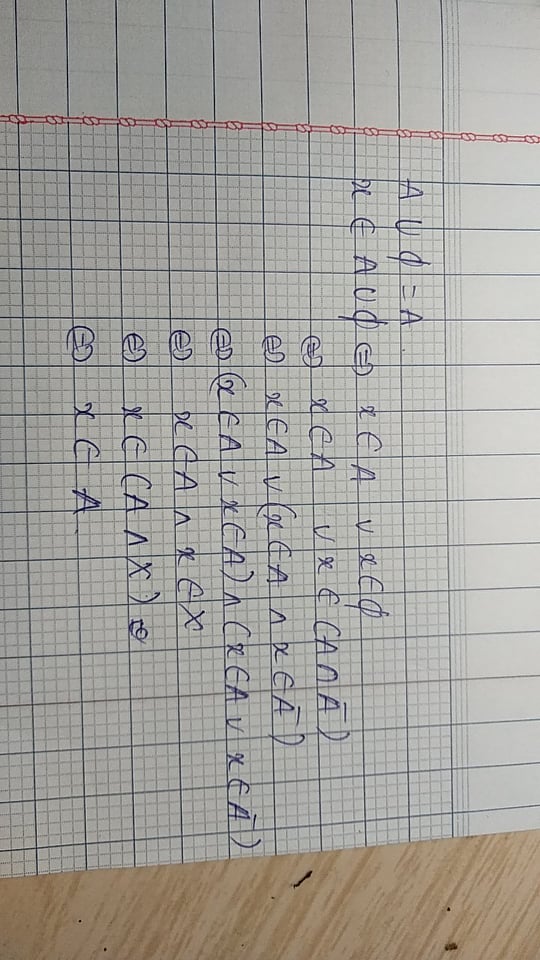 A ∪ ϕ = A .
x ∈ A ∪ ϕ ⇔ x ∈ A ∨ x ∈ ϕ
⇔ x ∈ A ∨ x ∈ (A ∩ Ā)
⇔ x ∈ A ∨ (x ∈ A ∧ x ∈ Ā)
⇔ (x ∈ A ∨ x ∈ A) ∧ (x ∈ A ∨ x ∈ Ā)
⇔ x ∈ A ∧ x ∈ X
⇔ x ∈ (A ∧ X)
⇔ x ∈ A .